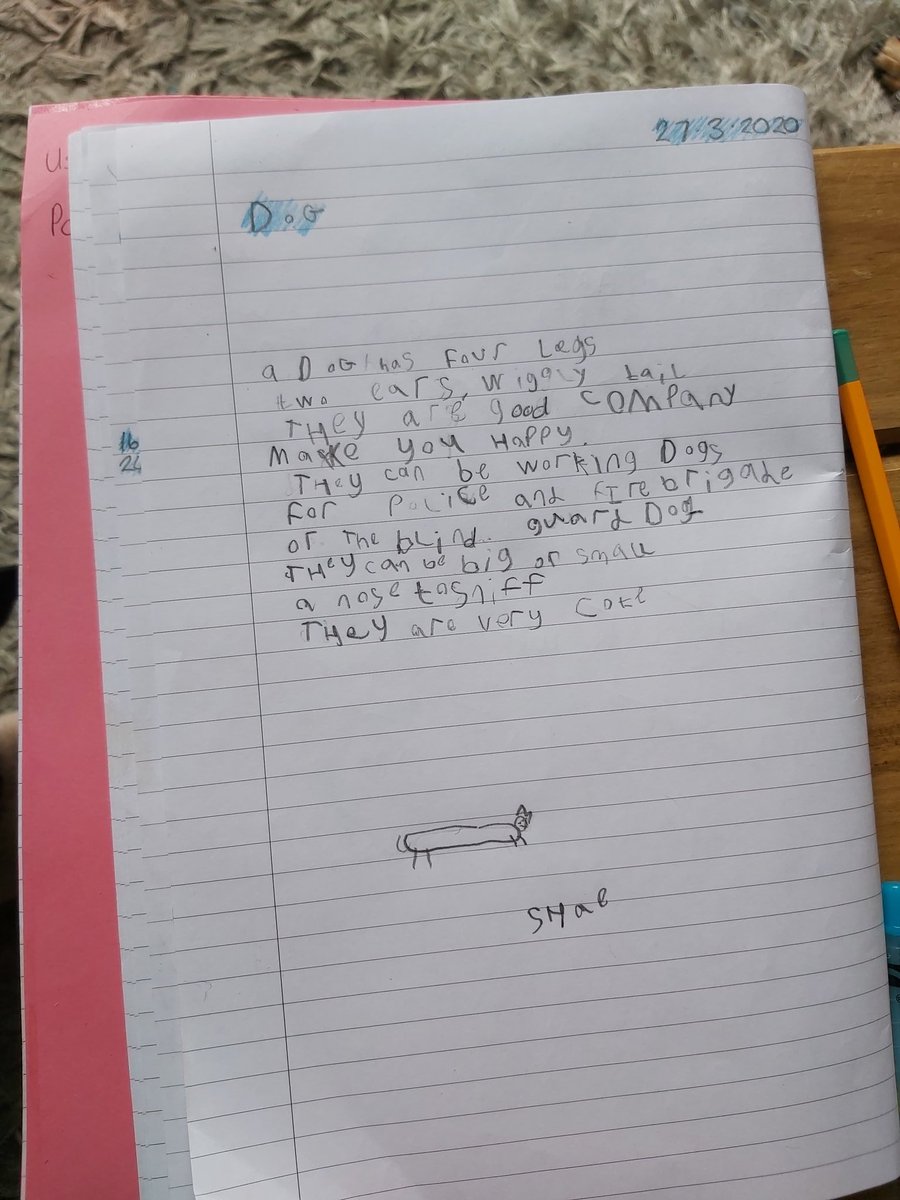 27.3.2020
U
Po
DoG
a DoG has Four Legs
two ears, wiggly tail
THey are good COMPANY
Make you Happy.
THey can be working Dogs
For Police and Firebrigade
or The blind. guard Dog
THey can be big or small
a nose to sniff
THey are very Cote
16
24
SHae